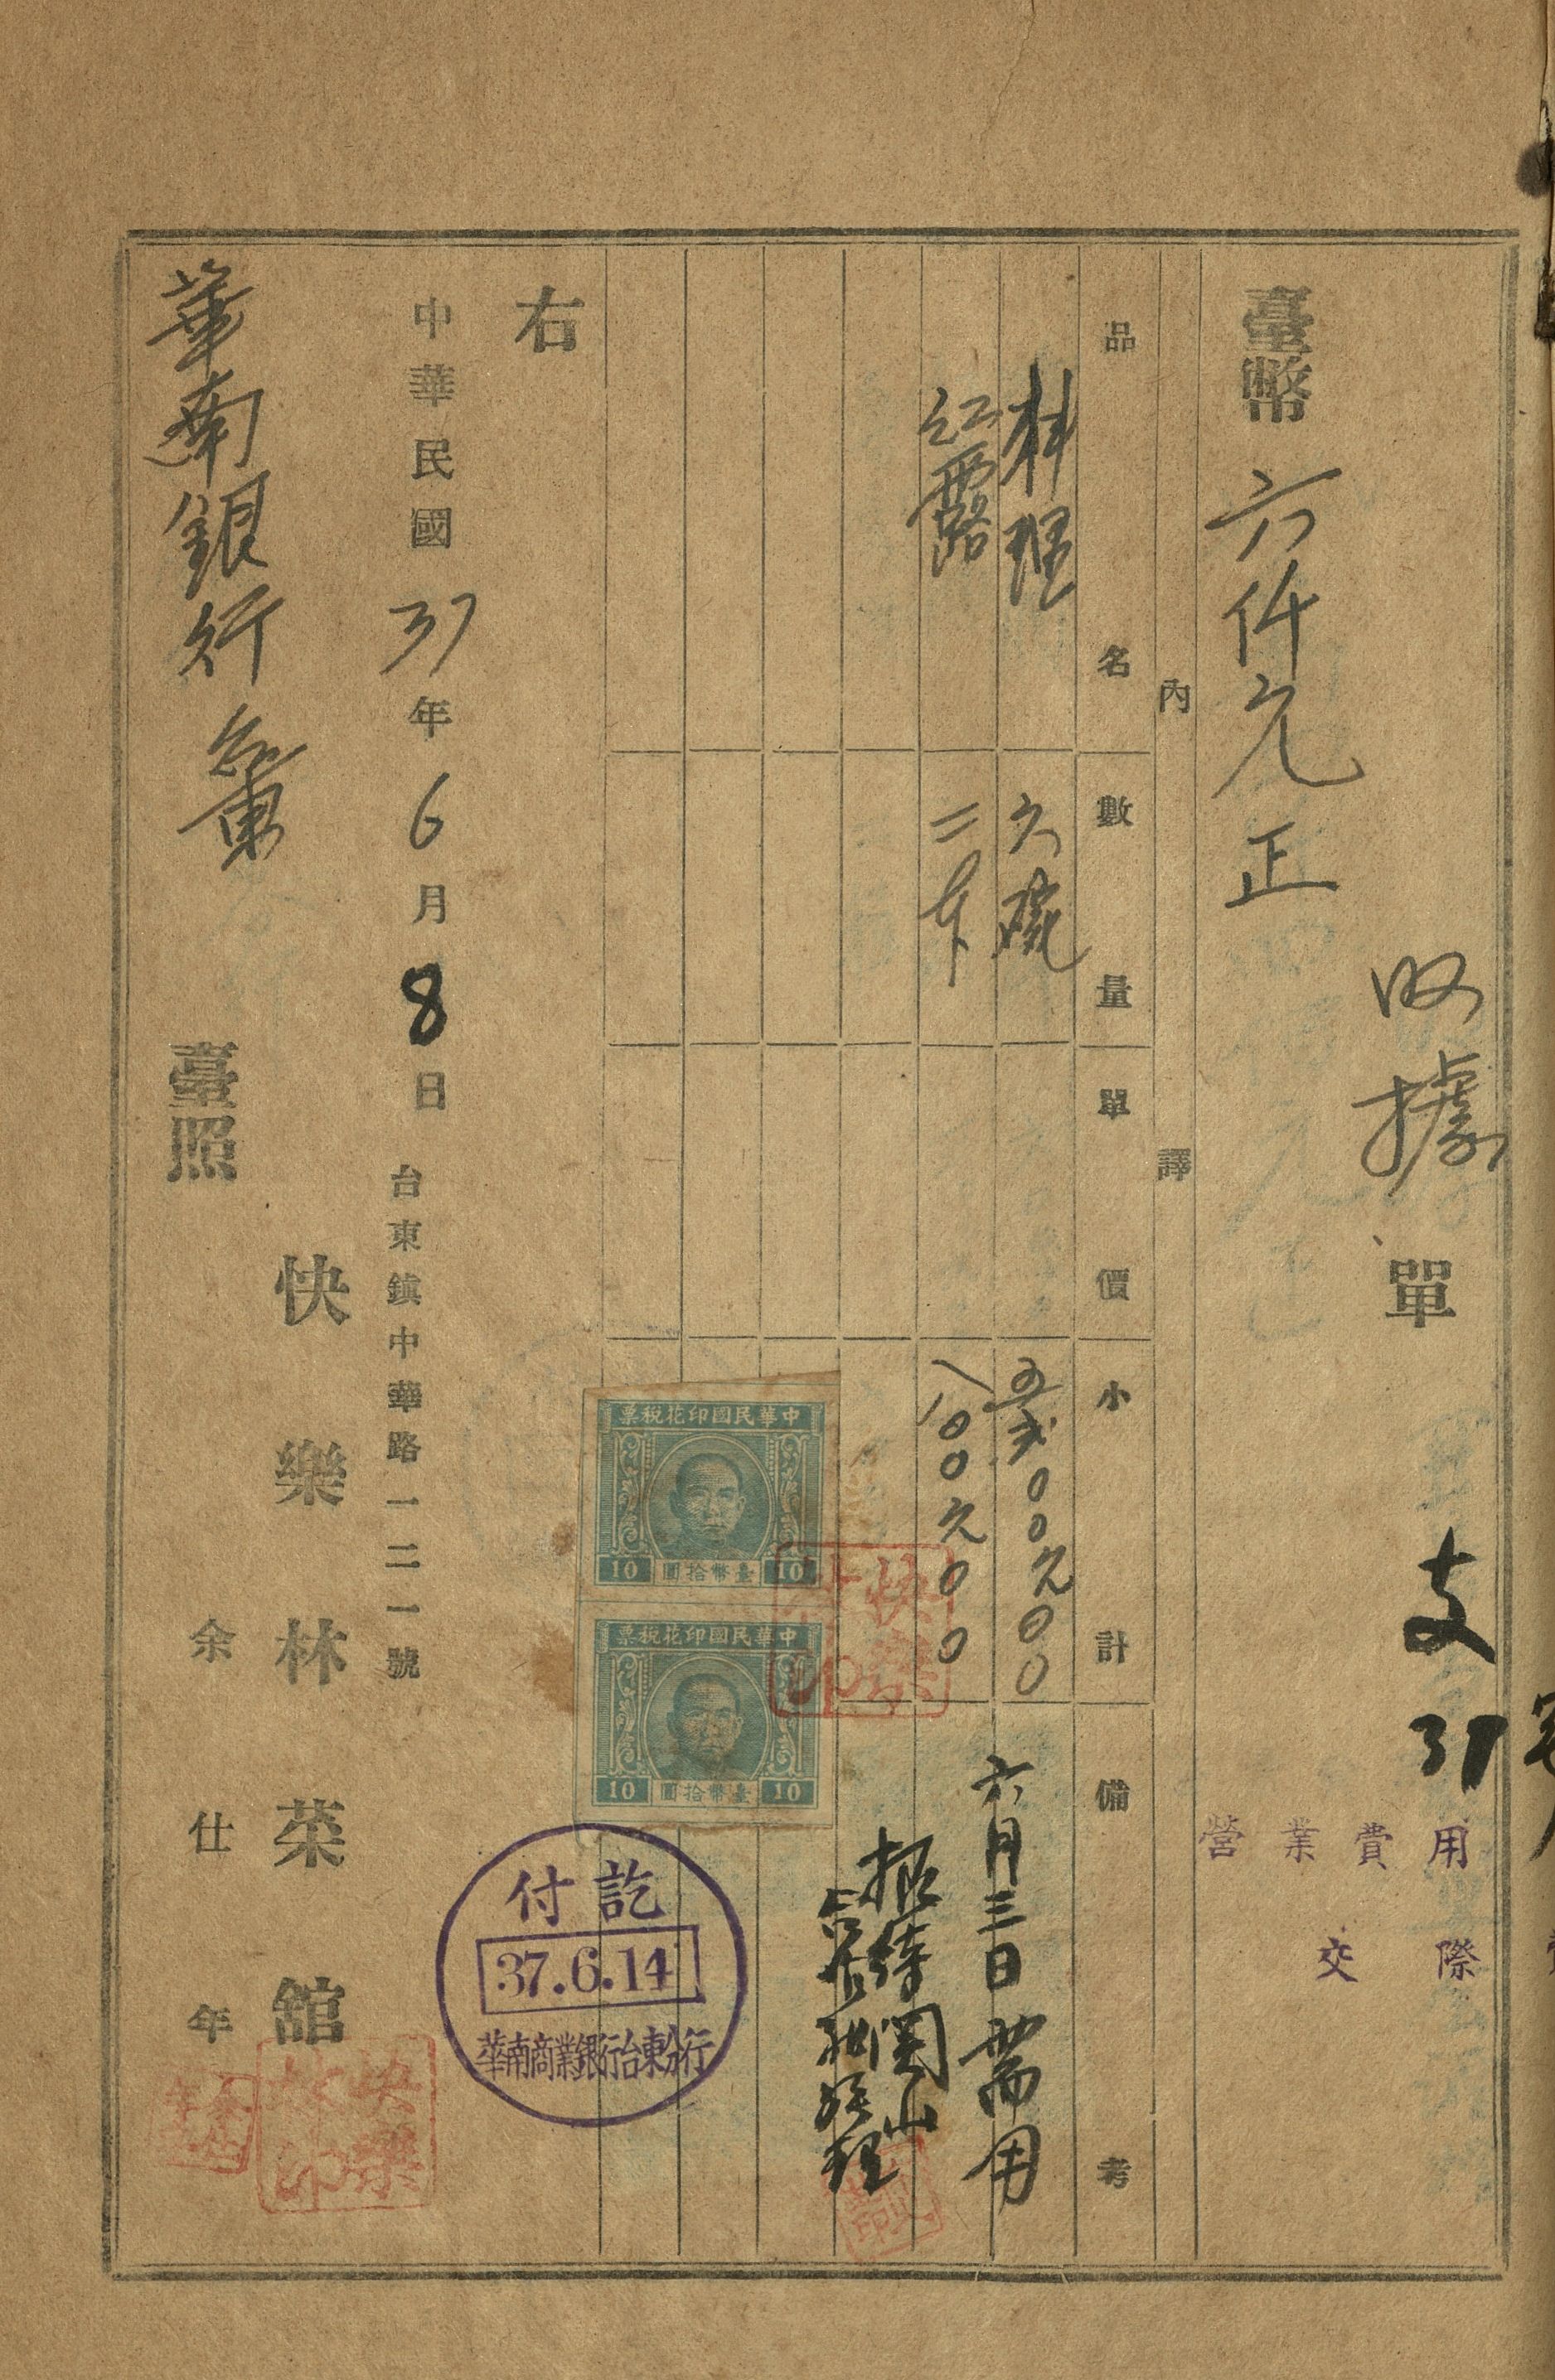 收據單
支
37
營業費用
交際
臺幣 六仟元正
內譯
品名 數量 單價 小計 備考
料理 六碗 五貳〇〇元〇〇 六月三日需用
紅露 二本 八〇〇元〇〇
招待關山
合作社經理
右
中華民國37年6月8日
台東鎮中華路一二一號
快樂林菜館
余仕年
華南銀行 台東
臺照
中華民國印花稅票
10 臺幣拾圓 10
中華民國印花稅票
10 臺幣拾圓 10
付訖
37.6.14
華南商業銀行台東分行
快樂
印